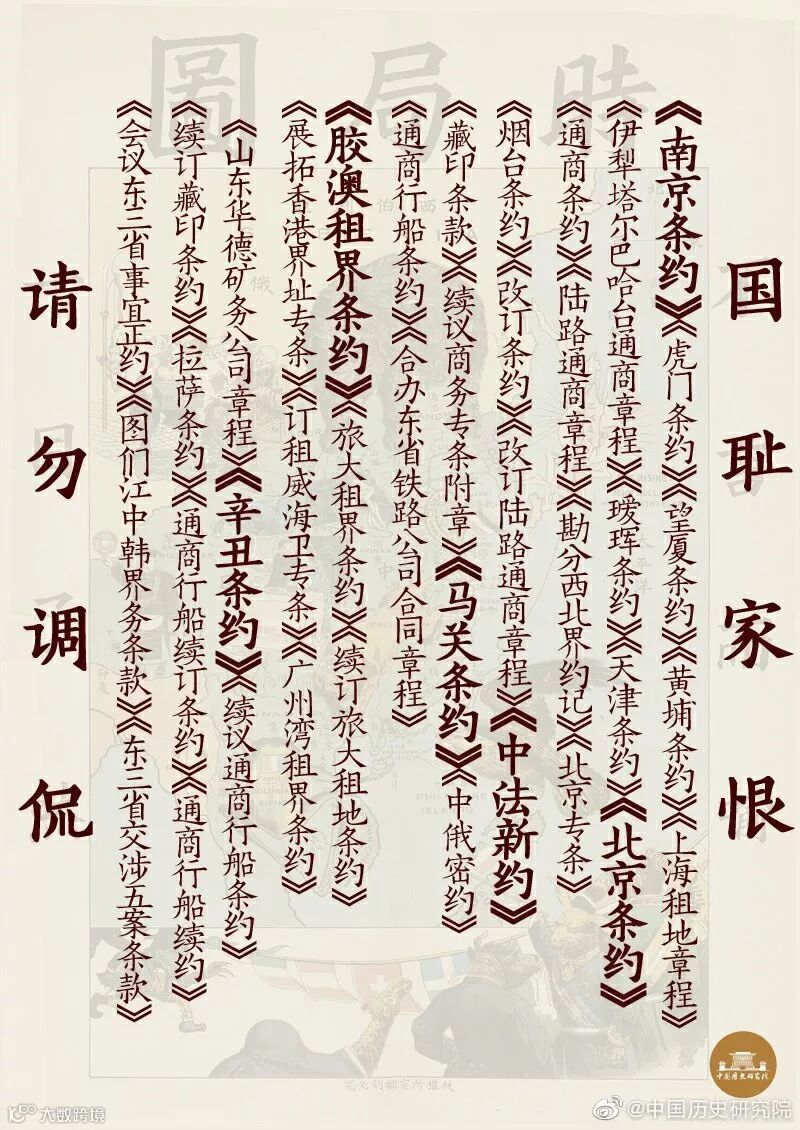 時局圖
国耻家恨
《南京条约》《虎门条约》《望厦条约》《黄埔条约》《上海租地章程》
《伊犁塔尔巴哈台通商章程》《瑷珲条约》《天津条约》《北京条约》
《通商条约》《陆路通商章程》《勘分西北界约记》《北京专条》
《烟台条约》《改订条约》《改订陆路通商章程》《中法新约》
《藏印条款》《续议商务专条附章》《马关条约》《中俄密约》
《通商行船条约》《合办东省铁路公司合同章程》
《胶澳租界条约》《旅大租界条约》《续订旅大租地条约》
《展拓香港界址专条》《订租威海卫专条》《广州湾租界条约》
《山东华德矿务公司章程》《辛丑条约》《续议通商行船条约》
《续订藏印条约》《拉萨条约》《通商行船续订条约》《通商行船续约》
《会议东三省事宜正约》《图们江中韩界务条款》《东三省交涉五案条款》
请勿调侃
PHILIPPINE
ISLANDS
中国历史研究院
大数跨境
@中国历史研究院